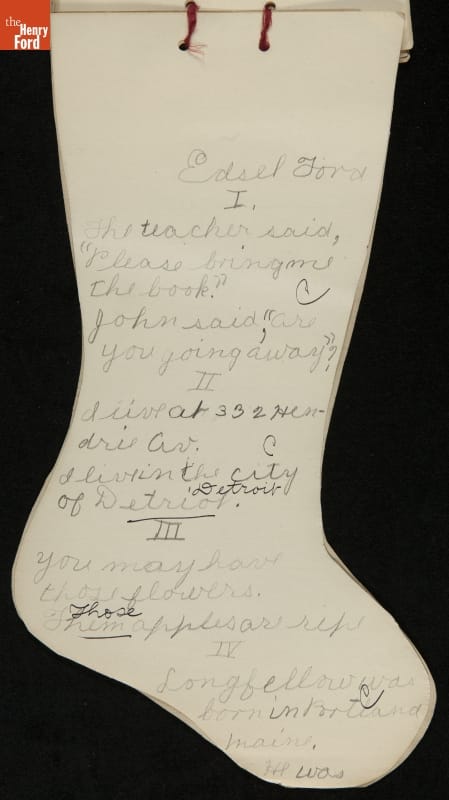 the
Henry
Ford
Edsel Ford
I.
The teacher said,
"Please bring me
the book."
C
John said, "are
you going away"?
II
I live at 332 Hen-
drie Av.
C
I live in the city
Detroit
of Detriot.
III
You may have
those flowers.
Those
Them apples are ripe
IV
Longfellow was
C
born in Portland
Maine.
He was